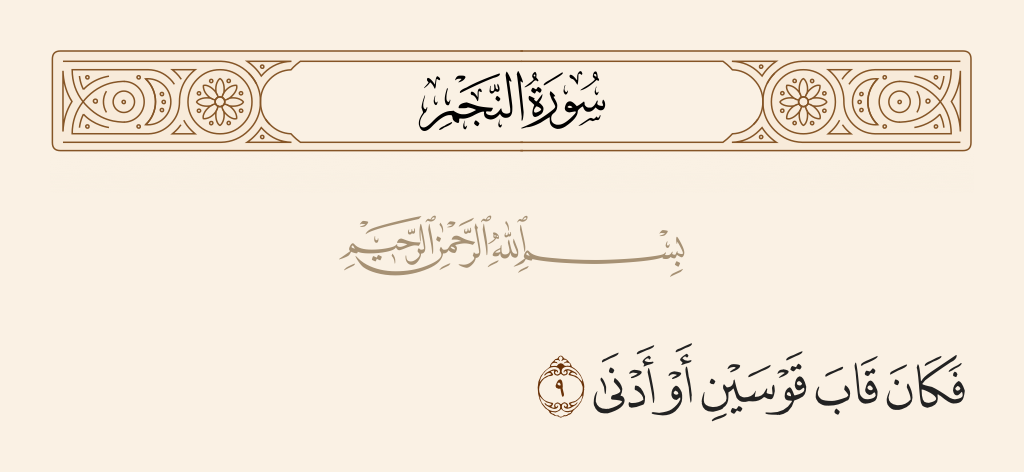 سُورَةُ النَّجْمِ
بِسْمِ ٱللَّهِ ٱلرَّحْمَٰنِ ٱلرَّحِيمِ
فَكَانَ قَابَ قَوْسَيْنِ أَوْ أَدْنَىٰ ٩